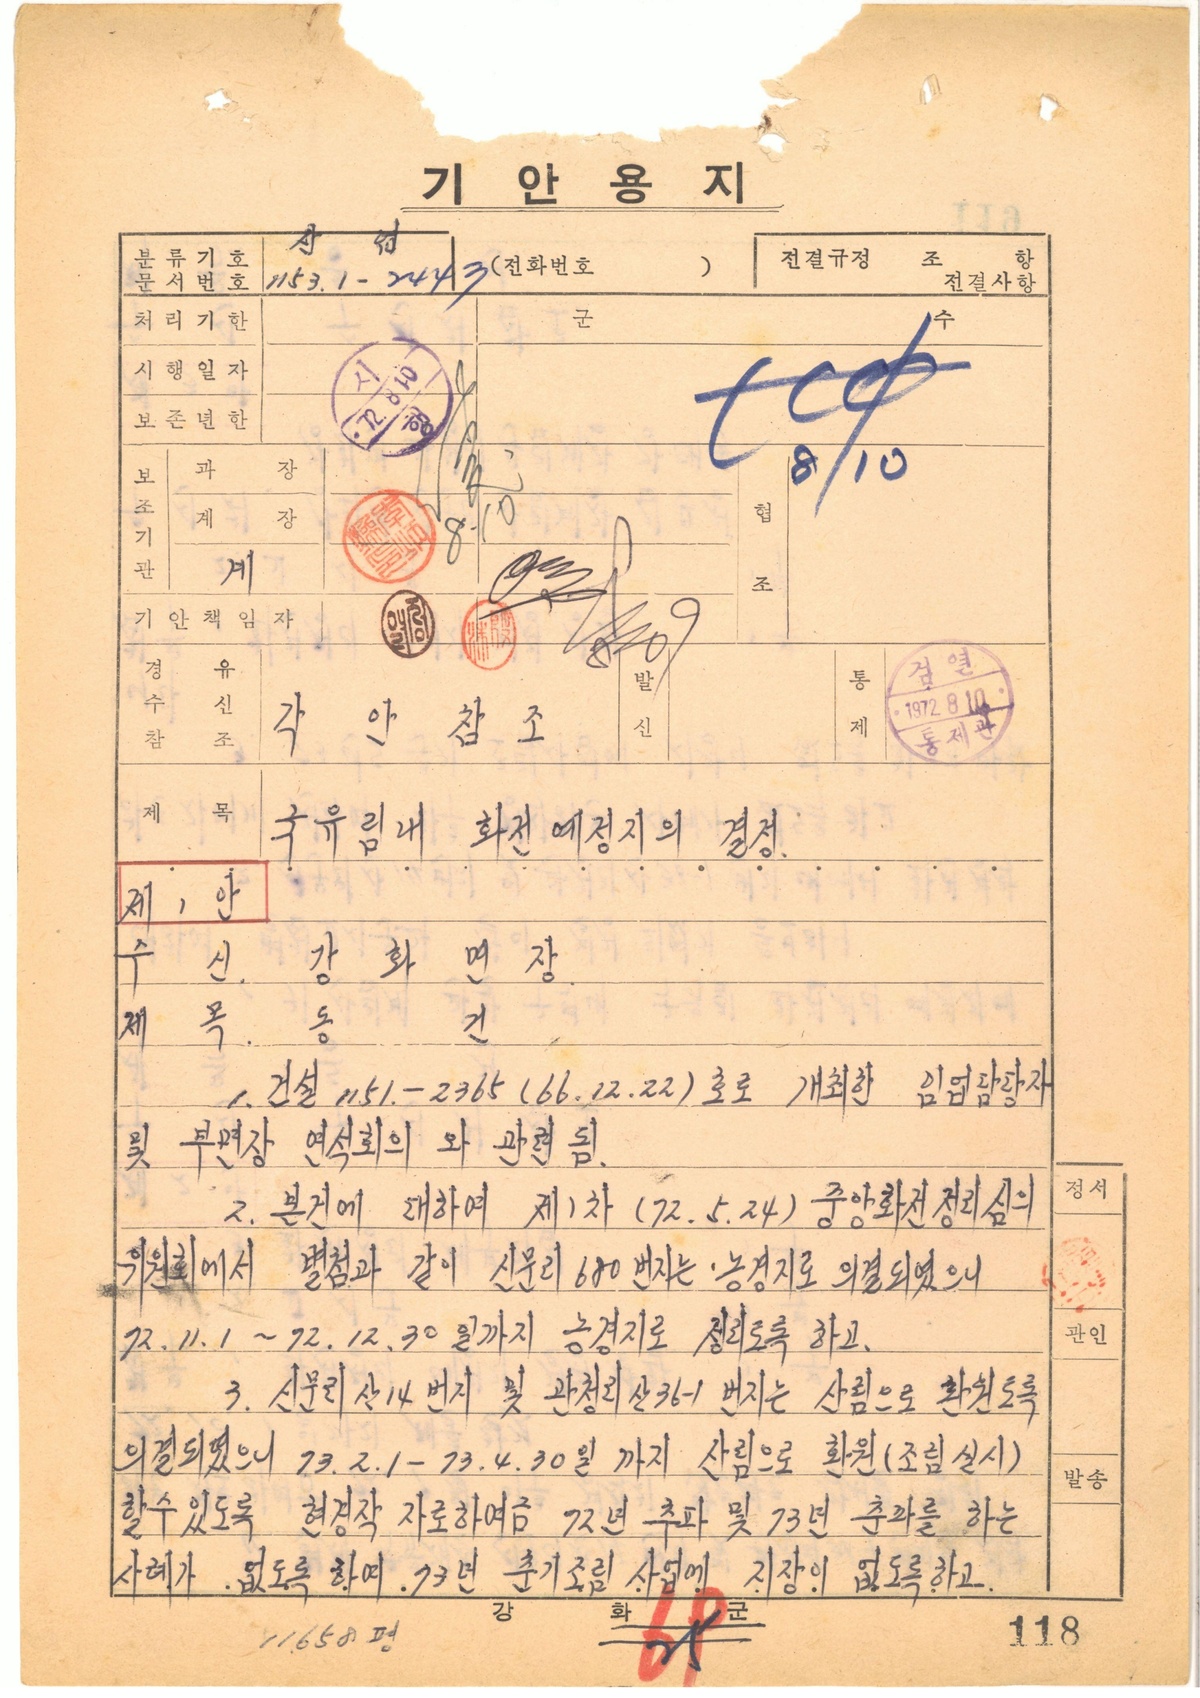 기 안 용 지
분류기호 문서번호 산 업 1153.1-2443 (전화번호 ) 전결규정 조 항 전결사항
처리기한 군 수
시행일자
보존년한
8/10
시 72.8.10
보조기관 과 장 8.10 협조
계 장
계
기안책임자 8.09
경유 수신 참조 각 안 참 조 발신 통제 검열 1972.8.10 통제관
제 목 국유림내 화전예정지의 결정.
제 1 안
수 신. 강 화 면 장.
제 목. 동 건
1. 건설 1151.-2365 (66.12.22) 호로 개최한 임업담당자
및 부면장 연석회의 와 관련 됨.
2. 본건에 대하여 제1차 (72.5.24) 중앙화전정리심의
위원회에서 별첨과 같이 신문리 680 번지는 농경지로 의결되였으니
72.11.1 ~ 72.12.30 일까지 농경지로 정리토록 하고.
3. 신문리 산14 번지 및 관청리 산36-1 번지는 산림으로 환원토록
의결되였으니 73.2.1 - 73.4.30일 까지 산림으로 환원(조림실시)
할수있도록 현경작 자로하여금 72년 추파 및 73년 춘파를 하는
사례가 없도록 하여 73년 춘기조림 사업에 지장이 없도록하고.
정서
관인
발송
강 화 군
11658평
69
25
118